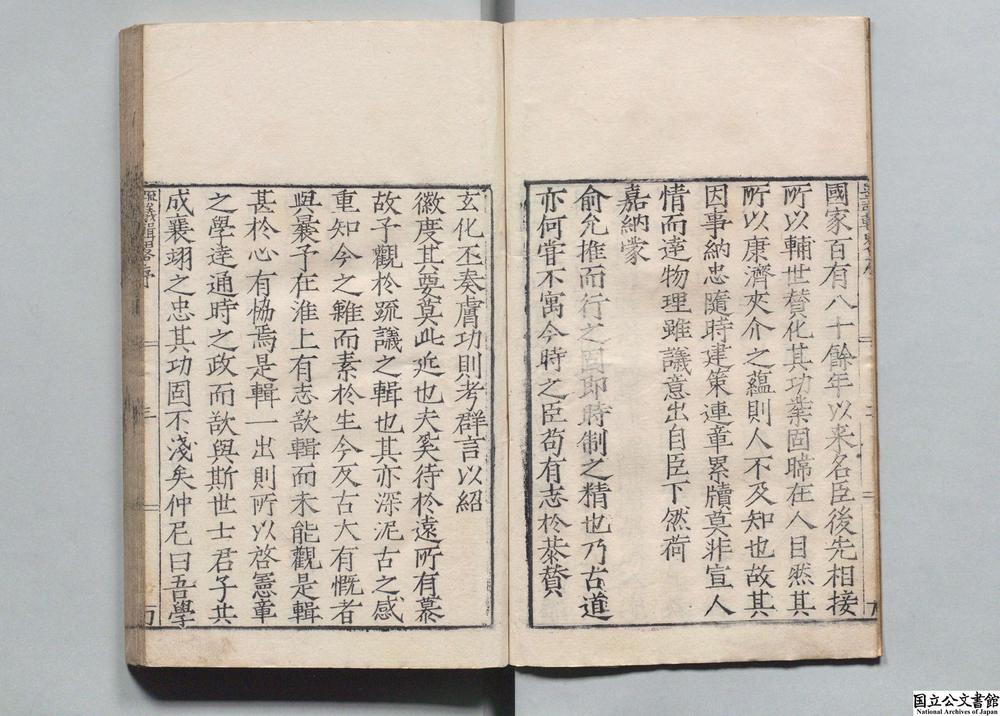 國家百有八十餘年以来名臣後先相接
所以輔世賛化其功業固晞在人目然其
所以康濟夾介之蘊則人不及知也故其
因事納忠隨時建策連章累牘莫非宣人
情而達物理雖議意出自臣下然荷
嘉納蒙
俞允推而行之固即時制之精也乃古道
亦何甞不寓今時之臣苟有志於恭賛
玄化丕奏膚功則考群言以紹
徽度其奠此近也夫奚待於遠所有慕
故予觀於疏議之輯也其亦深泥古之感
重知今之難而素於生今反古大有慨者
與曩予在淮上有志欲輯而未能觀是輯
甚於心有恊焉是輯一出則所以啓憲章
之學達通時之政而欲與斯世士君子共
成襄翊之忠其功固不淺矣仲尼曰吾學
疏議輯畧序
三
国立公文書館
National Archives of Japan